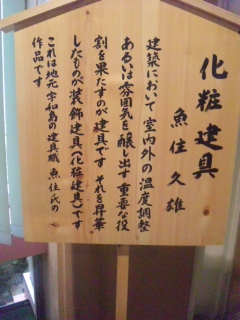 化粧建具
魚住久雄
建築において室内外の温度調整
あるいは雰囲気を醸し出す重要な役
割を果たすのが建具です それを昇華
したものが装飾建具(化粧建具)です
これは地元宇和島の建具職 魚住氏の
作品です